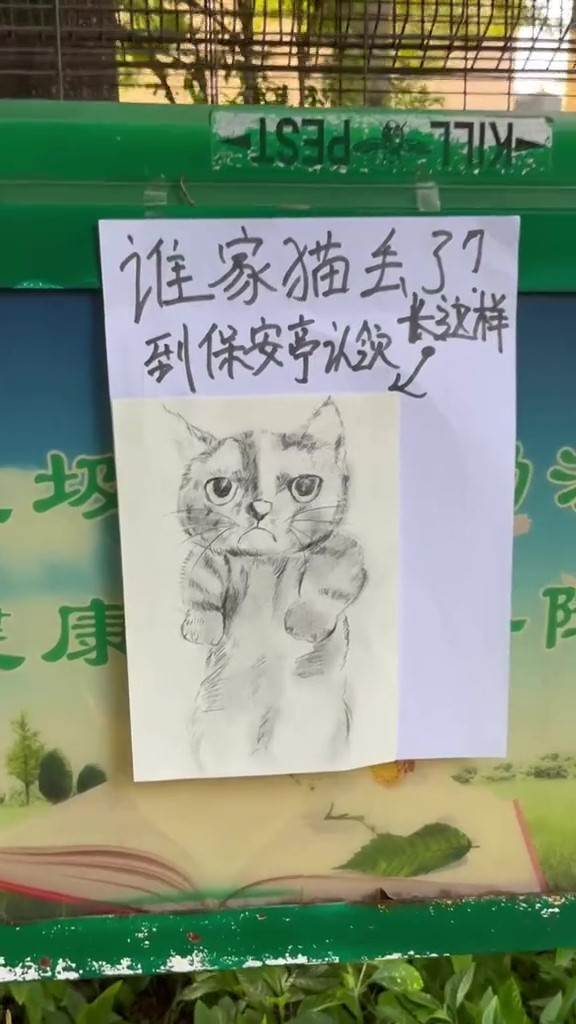 KILL PEST
谁家猫丢了?
到保安亭认领
长这样
圾
健康